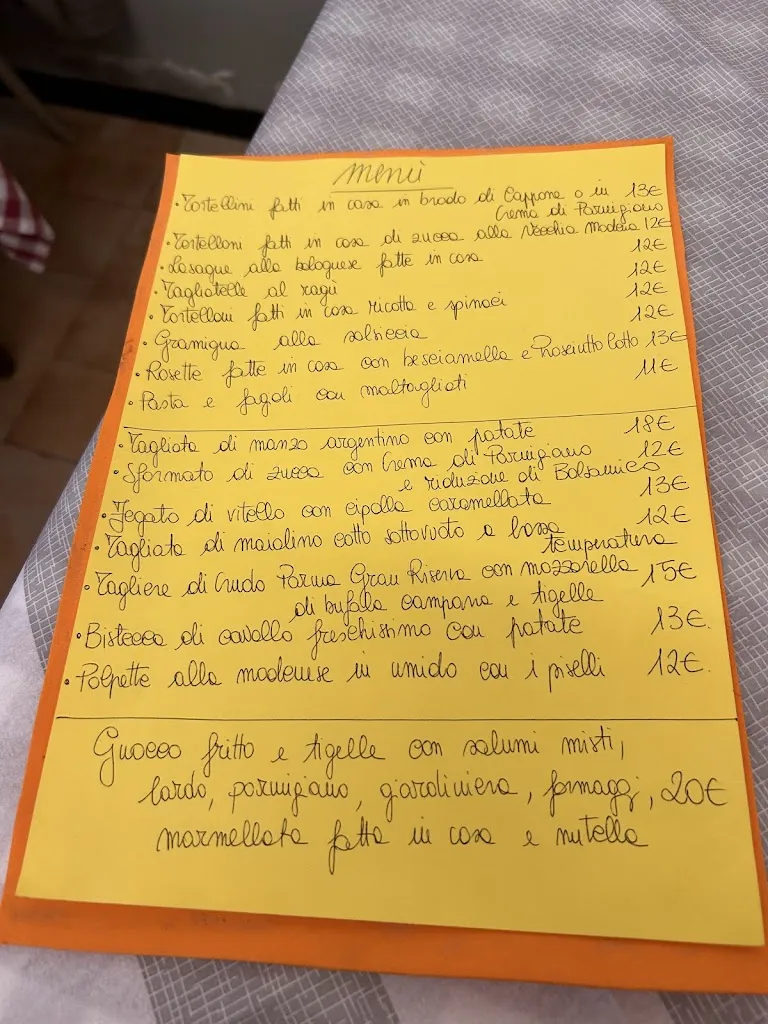 menù
• Tortellini fatti in casa in brodo di Cappone o in 13€
Crema di Parmigiano
• Tortelloni fatti in casa di zucca alla Vecchia Modena 12€
• Lasagne alla bolognese fatte in casa 12€
• Tagliatelle al ragù 12€
• Tortelloni fatti in casa ricotta e spinaci 12€
• Gramigna alla salsiccia 12€
• Rosette fatte in casa con besciamella e Prosciutto Cotto 13€
• Pasta e fagoli con maltagliati 11€
• Tagliata di manzo argentino con patate 18€
• Sformato di zucca con Crema di Parmigiano 12€
e riduzione di Balsamico
• Fegato di vitello con cipolla caramellata 13€
• Tagliata di maialino cotto sottovuoto a bassa 12€
temperatura
• Tagliere di Crudo Parma Gran Riserva con mozzarella 15€
di bufala campana e tigelle
• Bistecca di cavallo freschissimo con patate 13€.
• Polpette alla modenese in umido con i piselli 12€.
Gnocco fritto e tigelle con salumi misti,
lardo, parmigiano, giardiniera, formaggi, 20€
marmellata fatta in casa e nutella